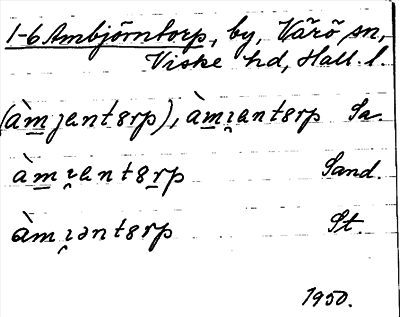 1-6 Ambjörntorp, by, Värö sn,
Viske hd, Hall. l.
(àm̲jantɛrp), àm̲ı̯antɛrp Sa.
àm̲ı̯antɛr̲p Sand.
àmı̯əntɛrp St.
1950.